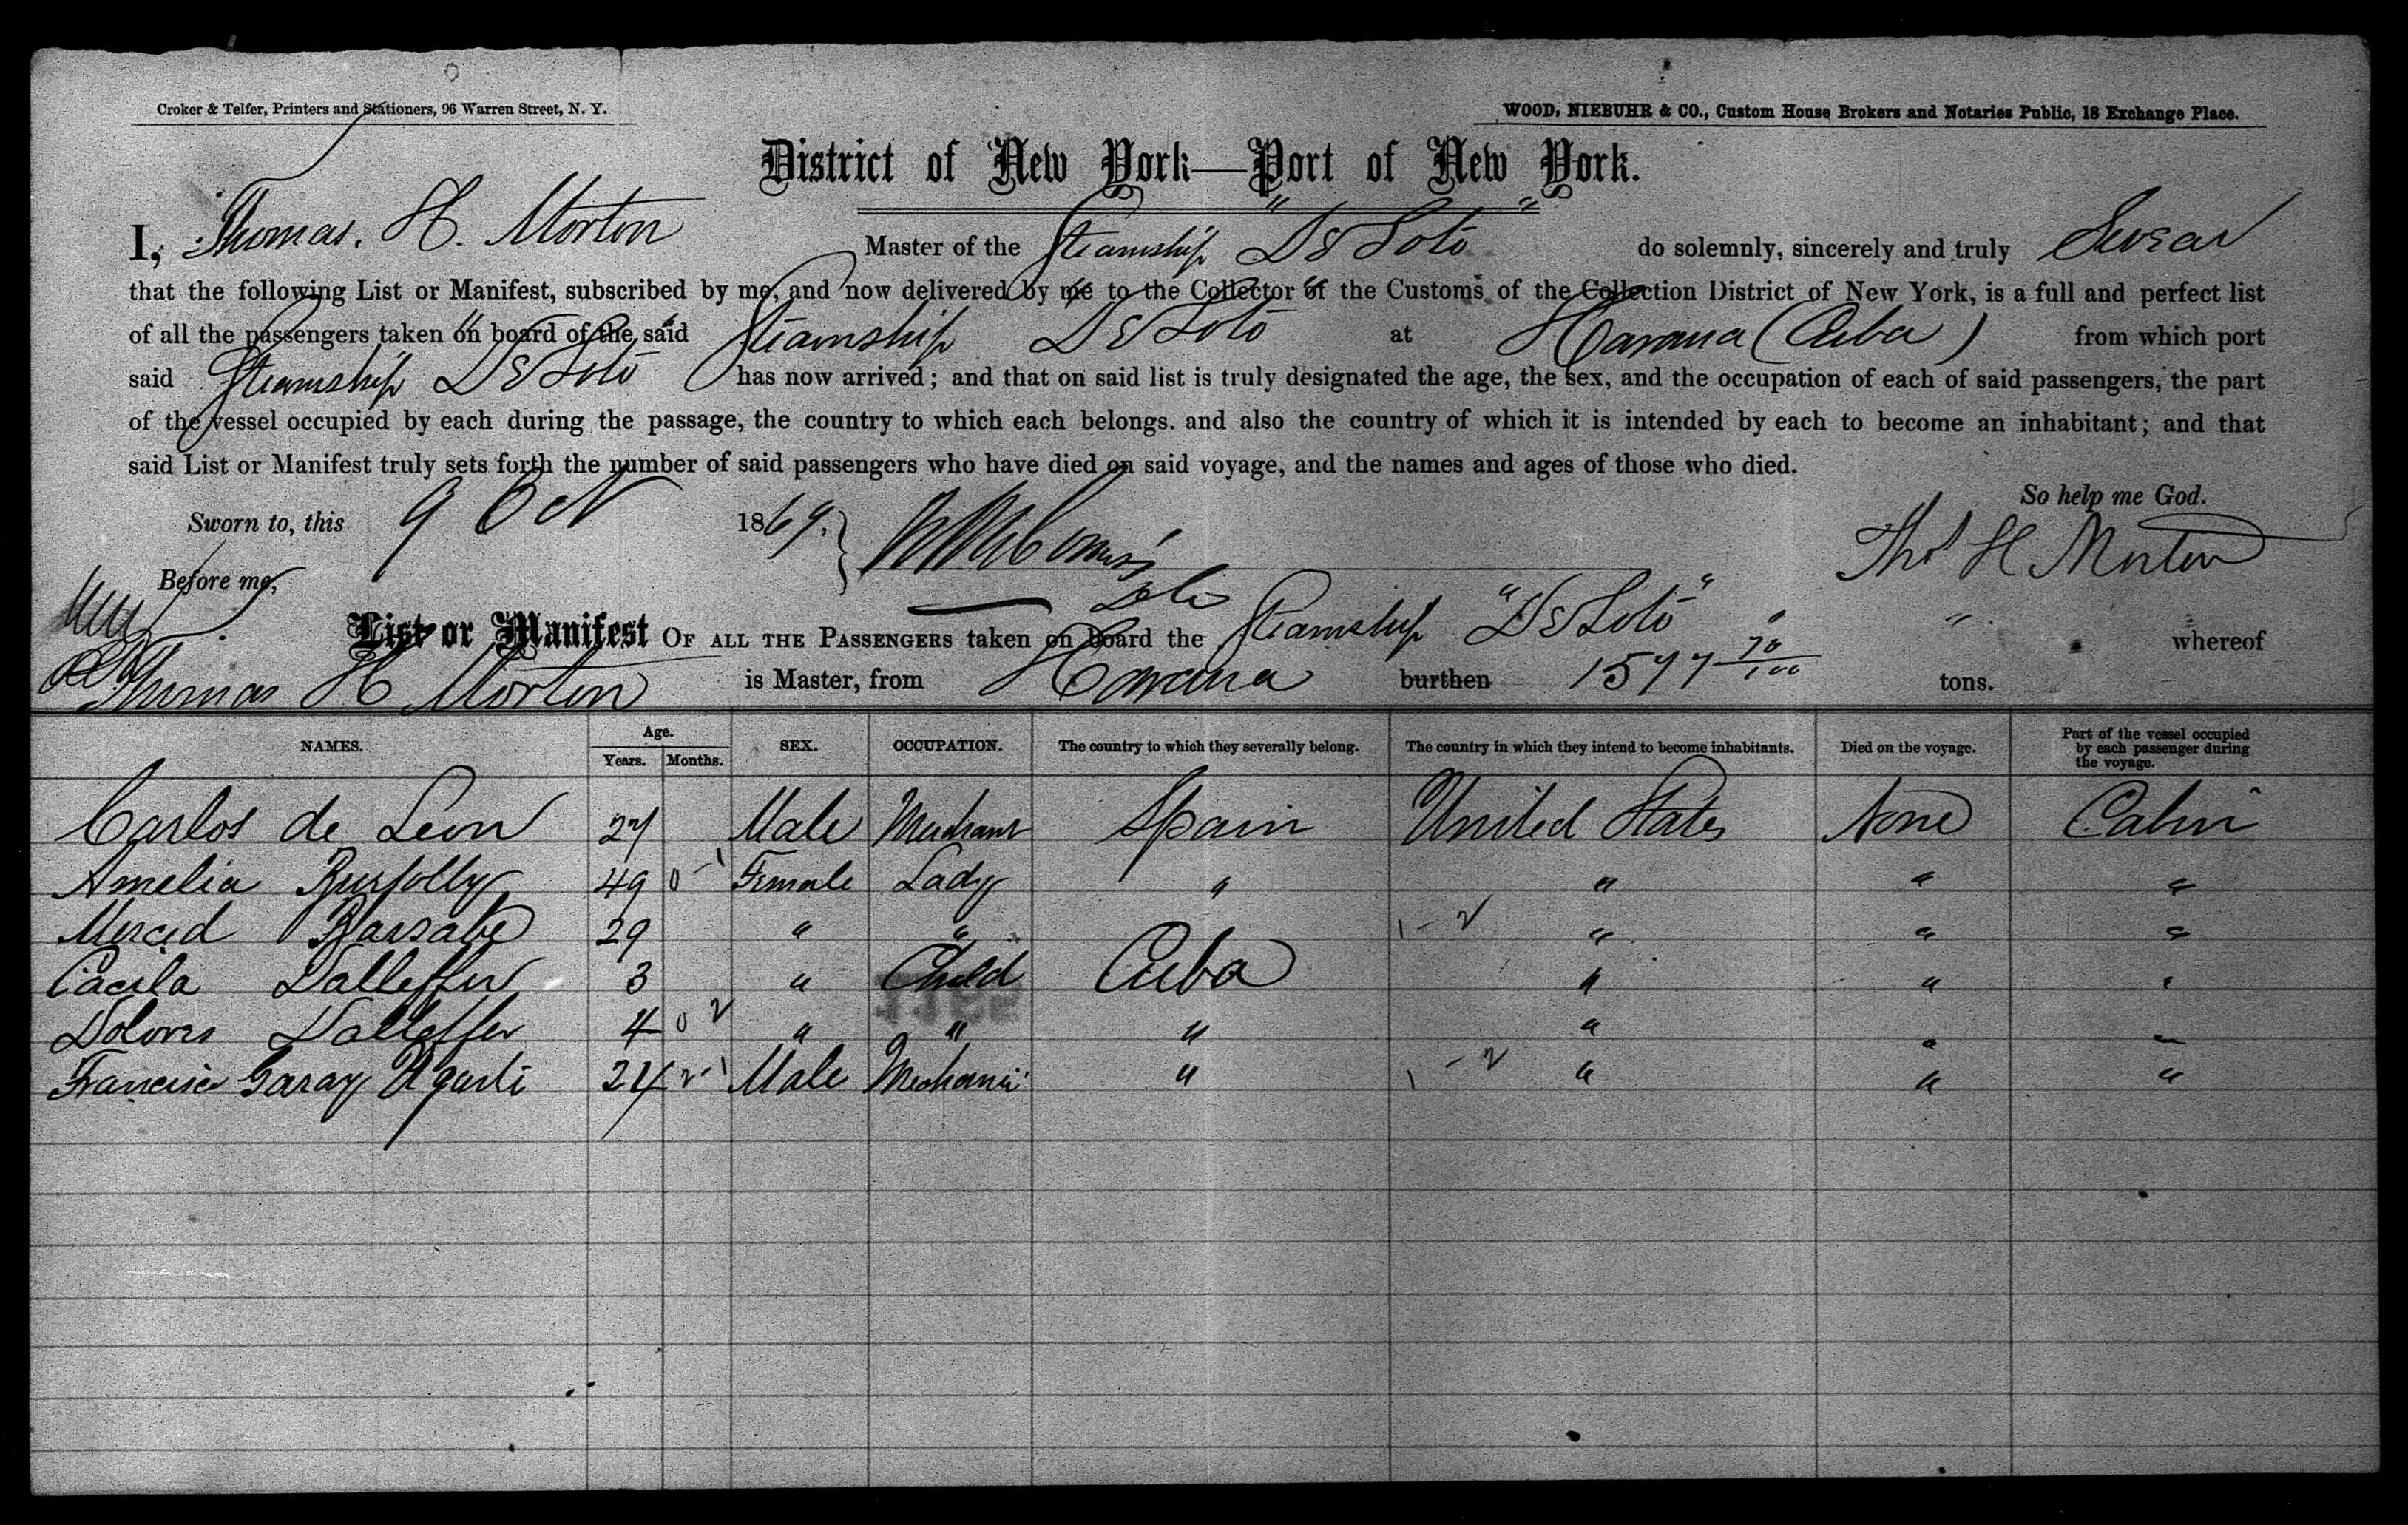 Croker & Telfer, Printers and Stationers, 96 Warren Street, N. Y.
WOOD, NIEBUHR & CO., Custom House Brokers and Notaries Public, 18 Exchange Place.
District of New York—Port of New York.
I, Thomas. H. Morton Master of the Steamship "De Soto" do solemnly, sincerely and truly Swear
that the following List or Manifest, subscribed by me, and now delivered by me to the Collector of the Customs of the Collection District of New York, is a full and perfect list
of all the passengers taken on board of the said Steamship "De Soto" at Havana (Cuba) from which port
said Steamship "De Soto" has now arrived; and that on said list is truly designated the age, the sex, and the occupation of each of said passengers, the part
of the vessel occupied by each during the passage, the country to which each belongs. and also the country of which it is intended by each to become an inhabitant; and that
said List or Manifest truly sets forth the number of said passengers who have died on said voyage, and the names and ages of those who died.
So help me God.
Sworn to, this 9 Oct 1869. Thos H Morton
Before me,
List or Manifest OF ALL THE PASSENGERS taken on board the Steamship "De Soto" " whereof
Thomas H Morton is Master, from Havana burthen 1577 70/100 tons.
NAMES. Age. Years. Months. SEX. OCCUPATION. The country to which they severally belong. The country in which they intend to become inhabitants. Died on the voyage. Part of the vessel occupied by each passenger during the voyage.
Carlos de Leon 27 Male Merchant Spain United States None Cabin
Amelia 49 0-1 Female Lady " " " "
Merced 29 " " 1-2 " " "
3 " Child Cuba " " "
Dolores 4 0 2 " " " " " "
Francisco Garay 24 2-1 Male Mechanic " 1-2 " " "